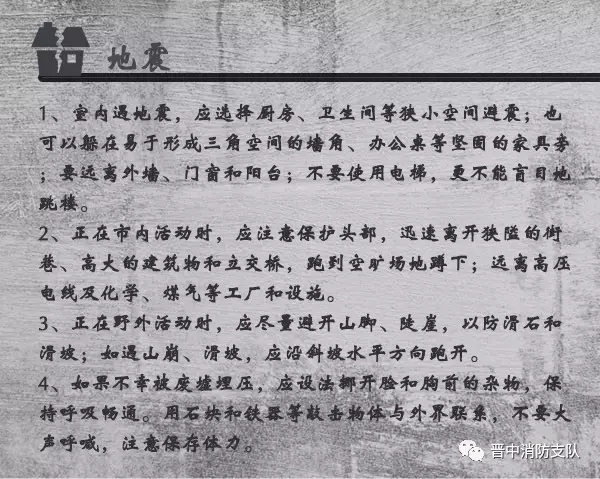 地震
1、室内遇地震，应选择厨房、卫生间等狭小空间避震；也
可以躲在易于形成三角空间的墙角、办公桌等坚固的家具旁
；要远离外墙、门窗和阳台；不要使用电梯，更不能盲目地
跳楼。
2、正在市内活动时，应注意保护头部，迅速离开狭隘的街
巷、高大的建筑物和立交桥，跑到空旷场地蹲下；远离高压
电线及化学、煤气等工厂和设施。
3、正在野外活动时，应尽量避开山脚、陡崖，以防滑石和
滑坡；如遇山崩、滑坡，应沿斜坡水平方向跑开。
4、如果不幸被废墟埋压，应设法挪开脸和胸前的杂物，保
持呼吸畅通。用石块和铁器等敲击物体与外界联系，不要大
声呼喊，注意保存体力。
晋中消防支队